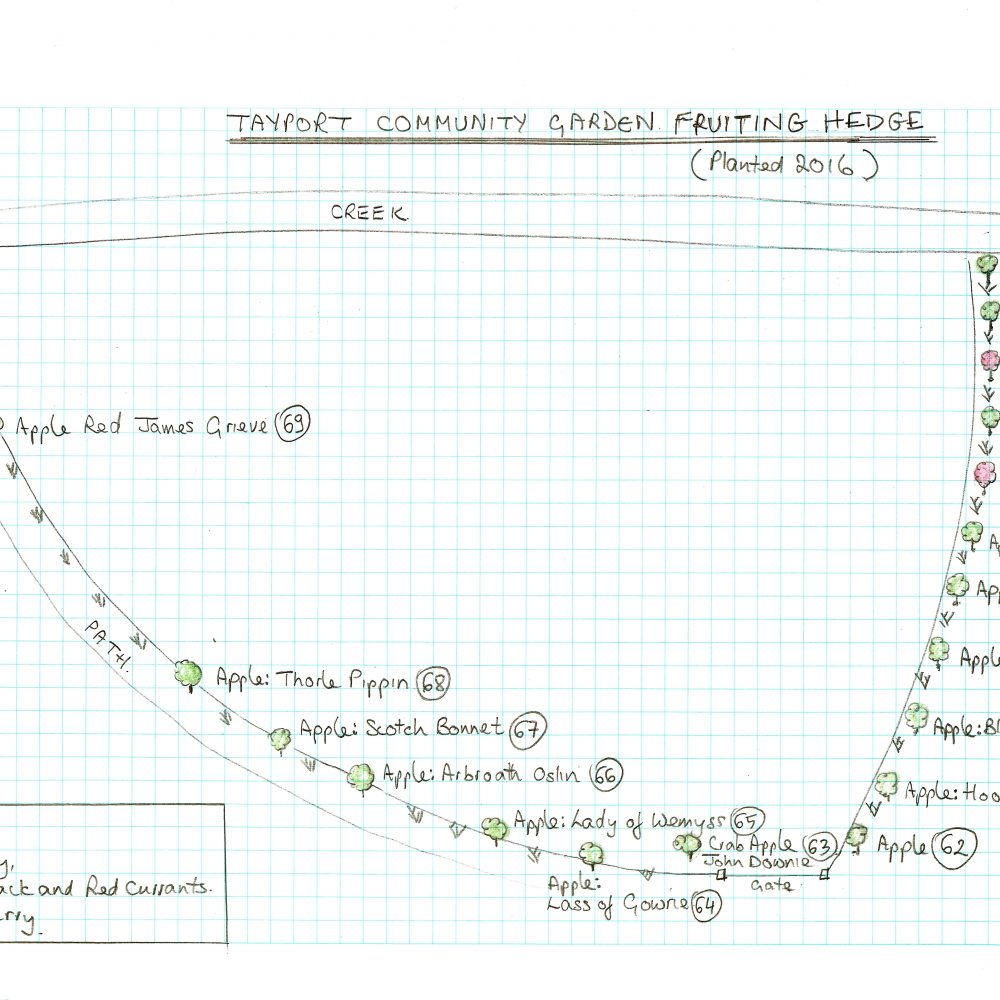 TAYPORT COMMUNITY GARDEN FRUITING HEDGE
(Planted 2016)
CREEK
Apple Red James Grieve 69
PATH.
Apple: Thorle Pippin 68
Apple: Scotch Bonnet 67
Apple: Arbroath Oslin 66
Apple: Lady of Wemyss 65
Crab Apple 63
John Downie
Gate
Apple:
Lass of Gowrie 64
Apple 62
Apple: Hoo
Apple: Bl
Apple
App
Ap
ack and Red Currants.
rry.